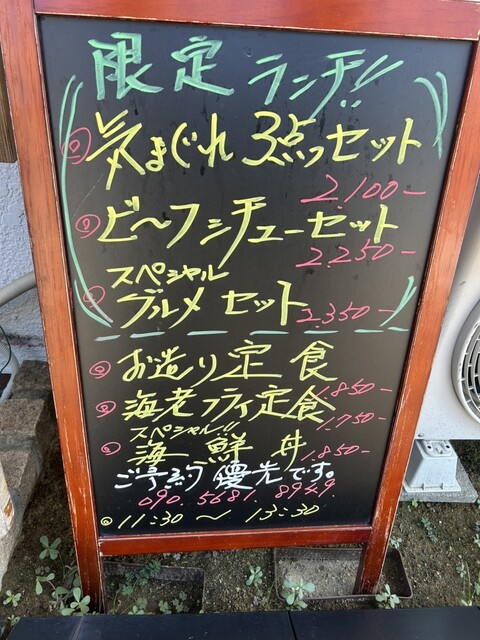 限定 ランチ!!
気まぐれ 3点セット
2.100-
ビーフシチューセット
2.250-
スペシャル
グルメ セット 2.350-
お造り定食
1.850-
海老フライ定食
1.750-
スペシャル!!
海鮮丼
1.850-
ご予約優先です。
090.5681.8949.
11:30 ～ 13:30